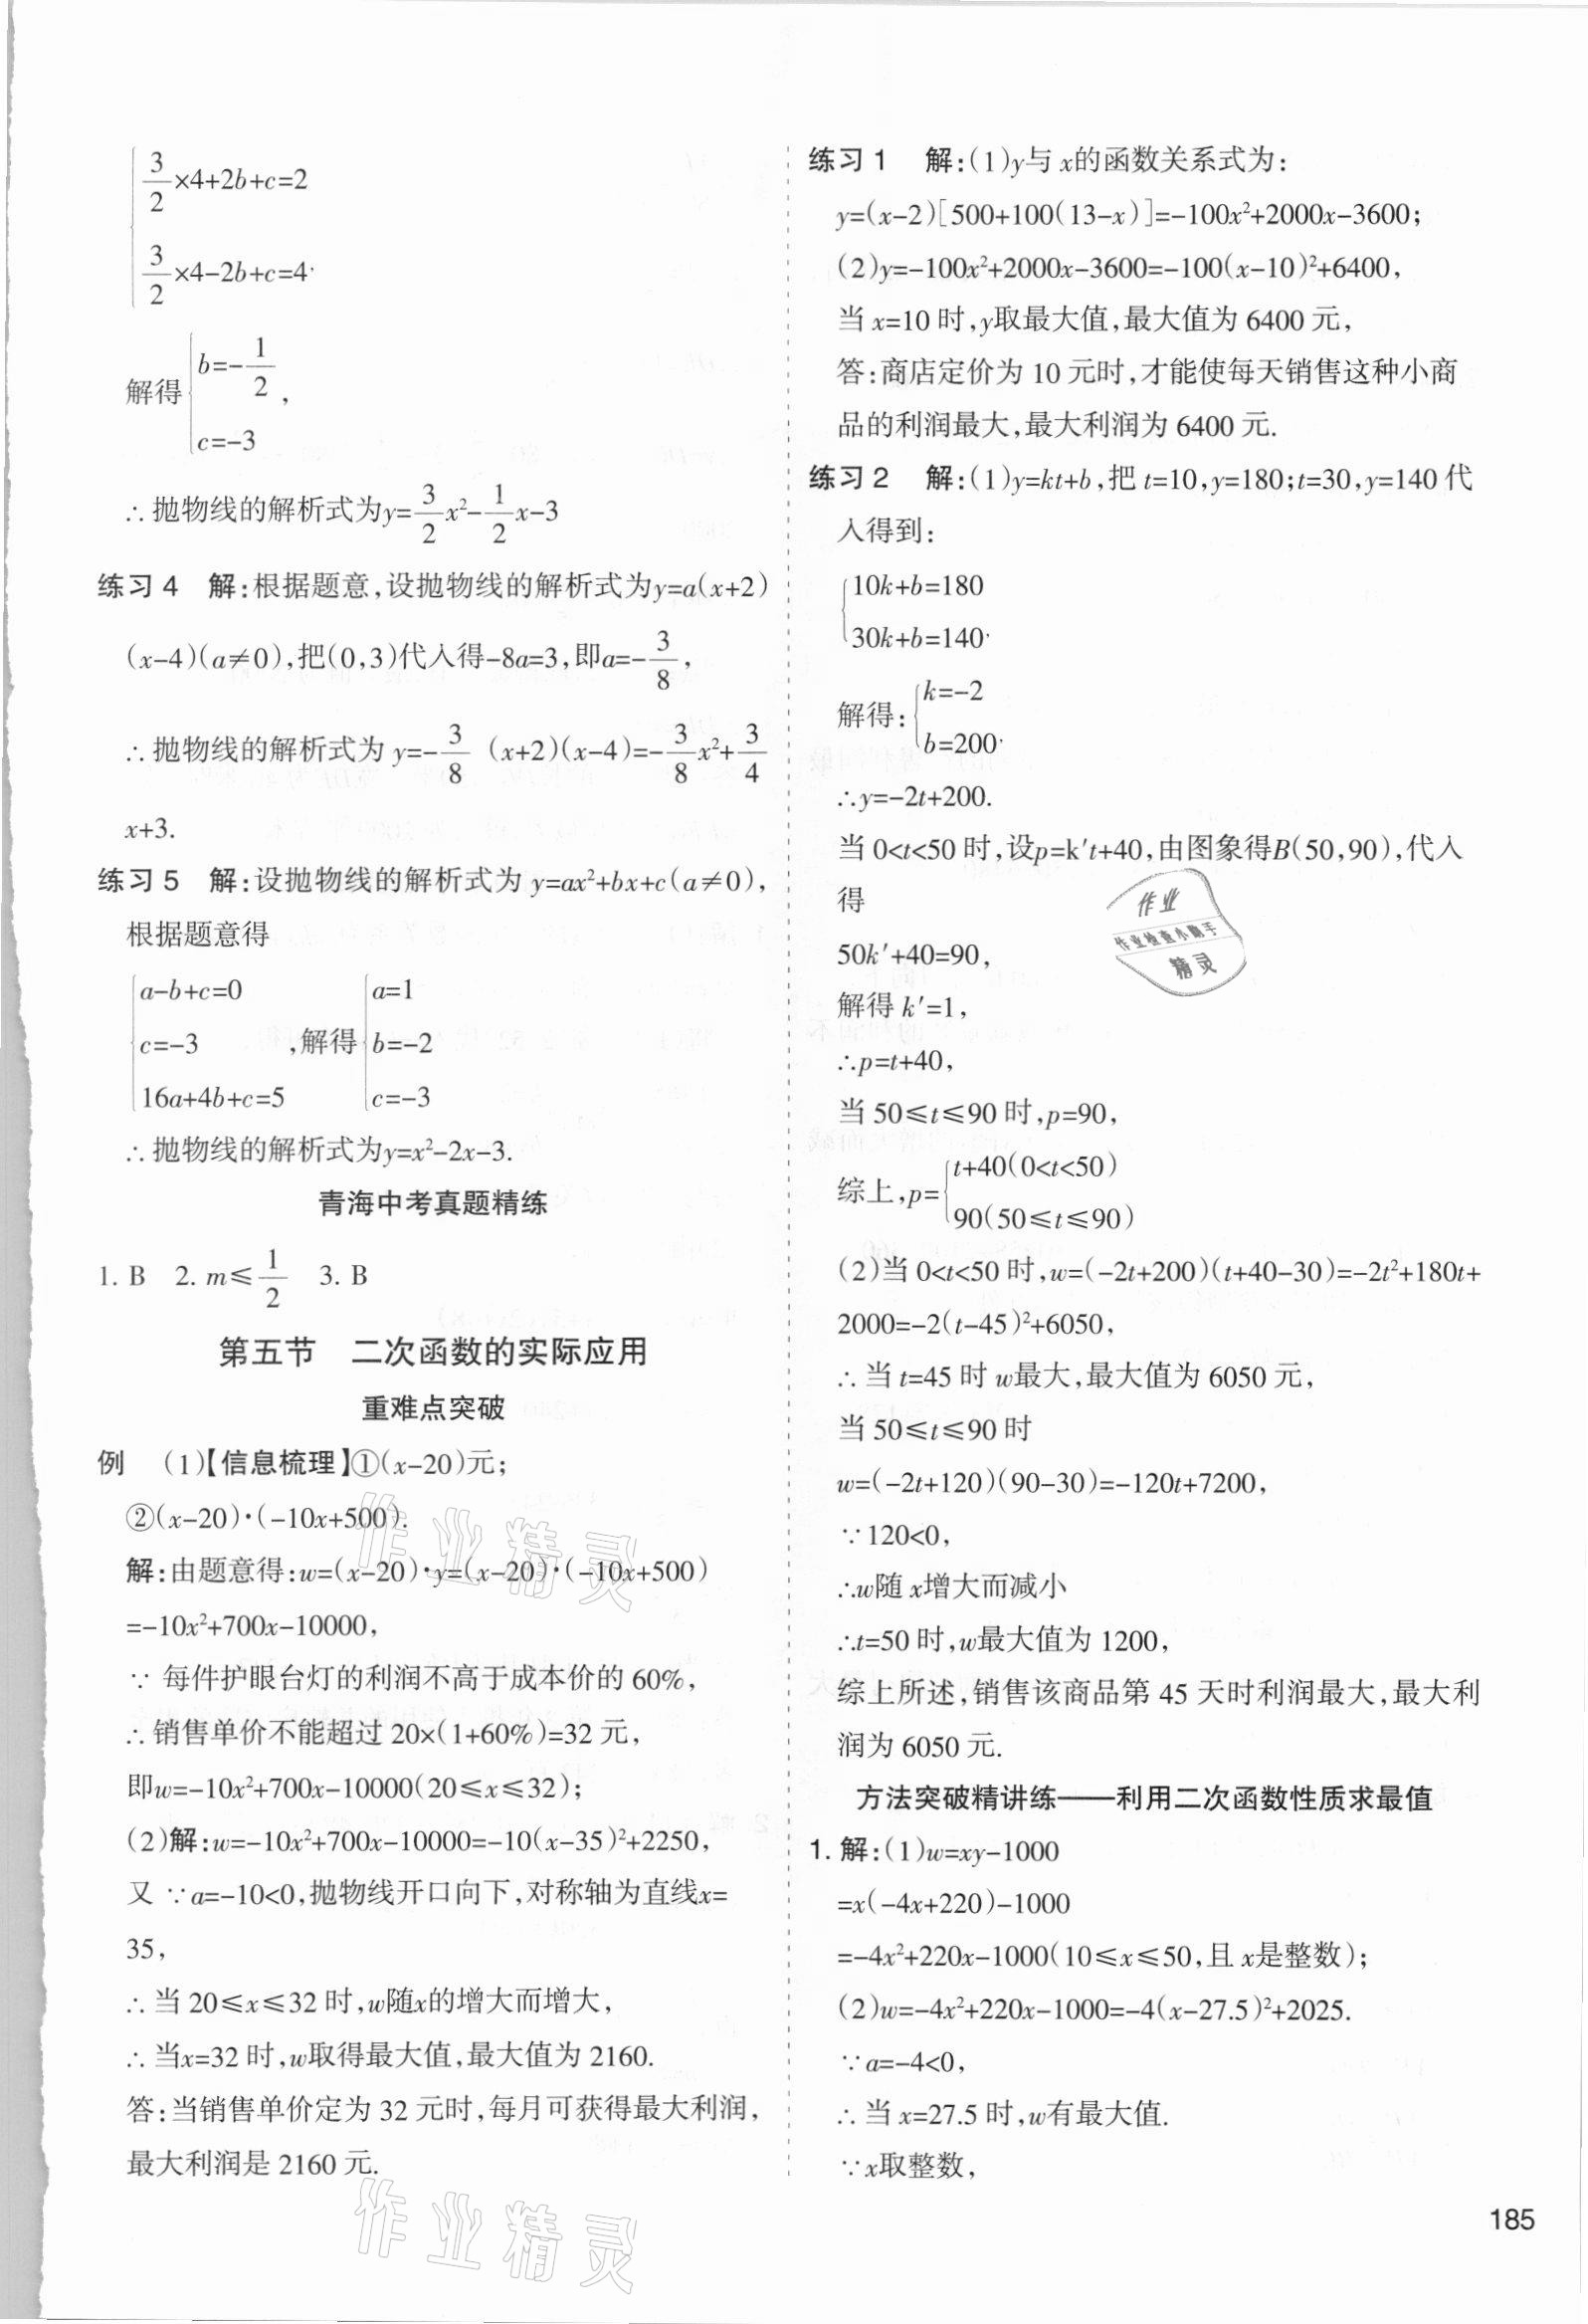 3/2×4+2b+c=2
3/2×4-2b+c=4.
解得{b=-1/2, c=-3,
∴抛物线的解析式为y=3/2x²-1/2x-3
练习4 解:根据题意,设抛物线的解析式为y=a(x+2)
(x-4)(a≠0),把(0,3)代入得-8a=3,即a=-3/8,
∴抛物线的解析式为 y=-3/8 (x+2)(x-4)=-3/8x²+3/4
x+3.
练习5 解:设抛物线的解析式为 y=ax²+bx+c(a≠0),
根据题意得
{a-b+c=0 c=-3 16a+4b+c=5 ,解得{a=1 b=-2 c=-3
∴抛物线的解析式为y=x²-2x-3.
青海中考真题精练
1. B 2. m≤1/2 3. B
第五节 二次函数的实际应用
重难点突破
例 (1)【信息梳理】①(x-20)元;
②(x-20)·(-10x+500).
解:由题意得:w=(x-20)·y=(x-20)·(-10x+500)
=-10x²+700x-10000,
∵ 每件护眼台灯的利润不高于成本价的60%,
∴销售单价不能超过20×(1+60%)=32元,
即w=-10x²+700x-10000(20≤x≤32);
(2)解:w=-10x²+700x-10000=-10(x-35)²+2250,
又 ∵a=-10<0,抛物线开口向下,对称轴为直线x=
35,
∴当20≤x≤32时,w随x的增大而增大,
∴当x=32时,w取得最大值,最大值为2160.
答:当销售单价定为32元时,每月可获得最大利润,
最大利润是2160元.
练习1 解:(1)y与x的函数关系式为:
y=(x-2)[500+100(13-x)]=-100x²+2000x-3600;
(2)y=-100x²+2000x-3600=-100(x-10)²+6400,
当x=10时,y取最大值,最大值为6400元,
答:商店定价为10元时,才能使每天销售这种小商
品的利润最大,最大利润为6400元.
练习2 解:(1)y=kt+b,把t=10,y=180;t=30,y=140代
入得到:
10k+b=180
30k+b=140.
解得:{k=-2 b=200.
∴y=-2t+200.
当0<t<50时,设p=k′t+40,由图象得B(50,90),代入
得
50k′+40=90,
解得k′=1,
∴p=t+40,
当50≤t≤90时,p=90,
综上,p={t+40(0<t<50) 90(50≤t≤90)
(2)当0<t<50时,w=(-2t+200)(t+40-30)=-2t²+180t+
2000=-2(t-45)²+6050,
∴当t=45时w最大,最大值为6050元,
当50≤t≤90时
w=(-2t+120)(90-30)=-120t+7200,
∵120<0,
∴w随x增大而减小
∴t=50时,w最大值为1200,
综上所述,销售该商品第45天时利润最大,最大利
润为6050元.
方法突破精讲练——利用二次函数性质求最值
1. 解:(1)w=xy-1000
=x(-4x+220)-1000
=-4x²+220x-1000(10≤x≤50,且x是整数);
(2)w=-4x²+220x-1000=-4(x-27.5)²+2025.
∵a=-4<0,
∴当x=27.5时,w有最大值.
∵x取整数,
185
作业
作业检查小助手
精灵
作业精灵
作业精灵